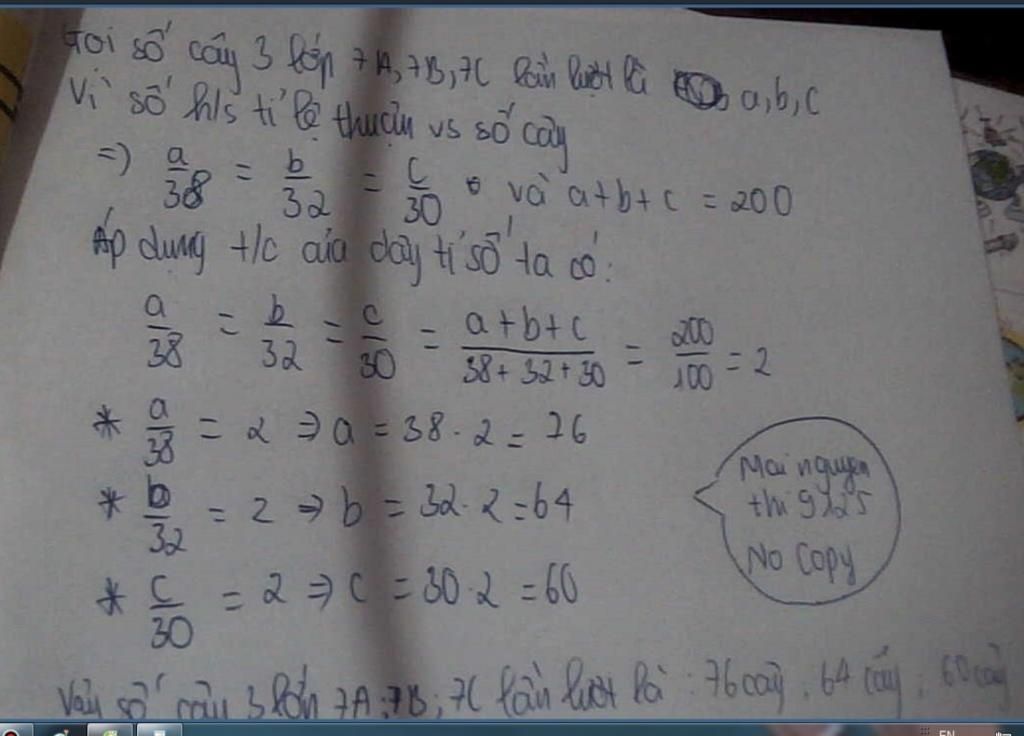 Gọi số cây 3 lớp 7A, 7B, 7C lần lượt là a, b, c
Vì số h/s tỉ lệ thuận vs số cây
=> a/38 = b/32 = c/30 và a + b + c = 200
Áp dụng t/c của dãy tỉ số ta có:
a/38 = b/32 = c/30 = a + b + c/38 + 32 + 30 = 200/100 = 2
* a/38 = 2 => a = 38 . 2 = 76
* b/32 = 2 => b = 32 . 2 = 64
* c/30 = 2 => c = 30 . 2 = 60
Mai nguyen
thi 9x25
No Copy
Vậy số cây 3 lớp 7A; 7B; 7C lần lượt là : 76 cây; 64 cây; 60 cây
EN